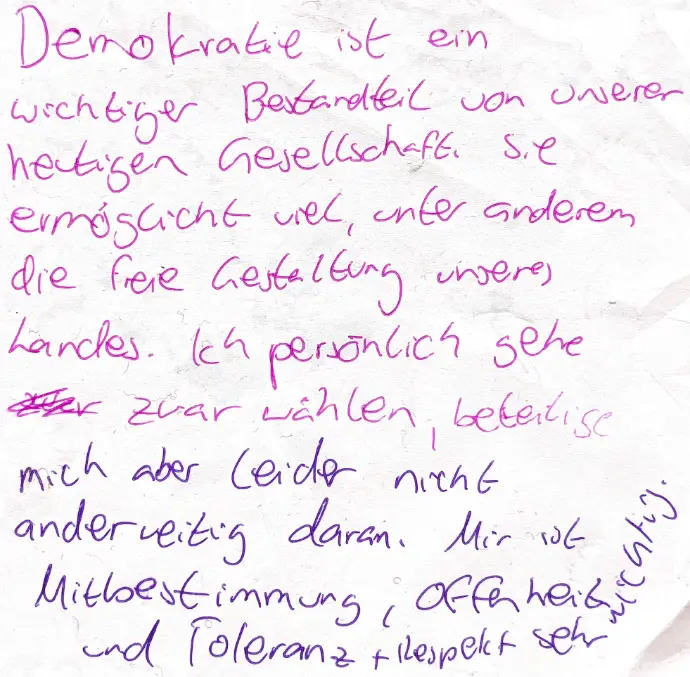 Demokratie ist ein
wichtiger Bestandteil von unserer
heutigen Gesellschaft. Sie
ermöglicht viel, unter anderem
die freie Gestaltung unseres
Landes. Ich persönlich gehe
zwar wählen, beteilige
mich aber leider nicht
anderweitig daran. Mir ist
Mitbestimmung, Offenheit
und Toleranz + Respekt sehr wichtig.